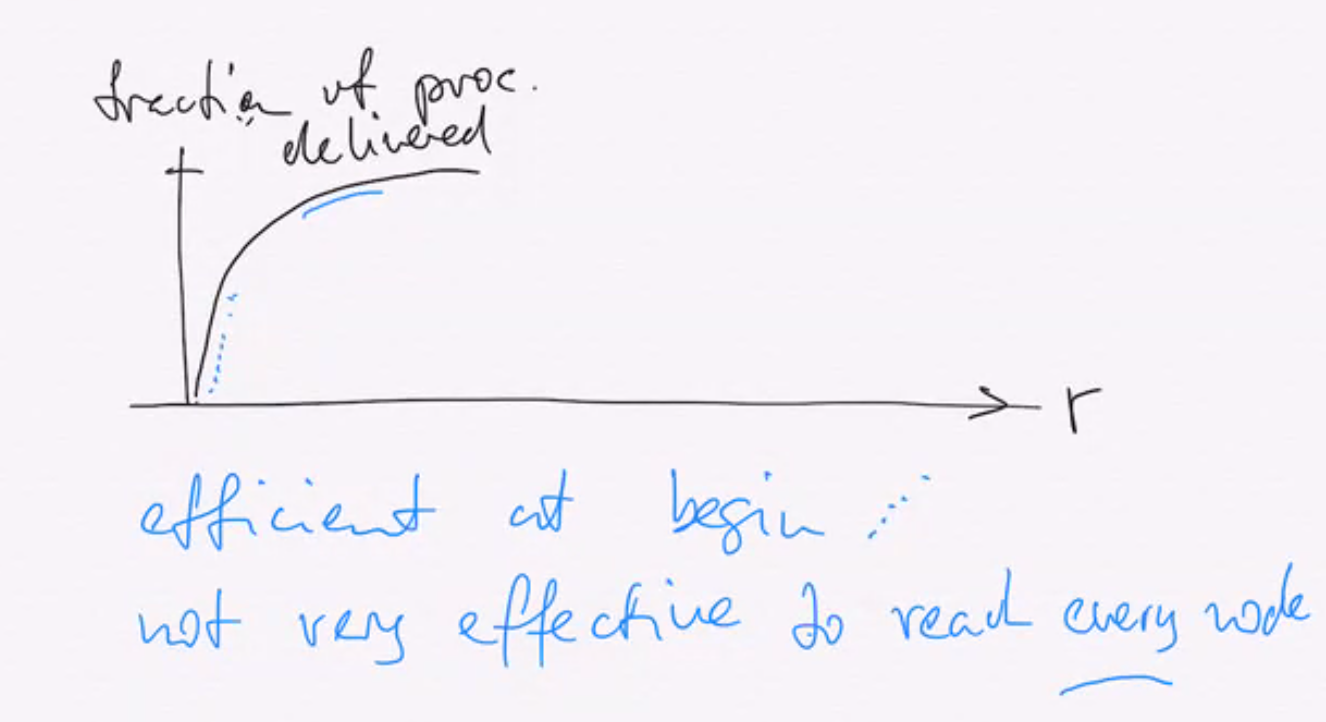 fraction of proc.
delivered
r
efficient at begin
not very effective to reach every node